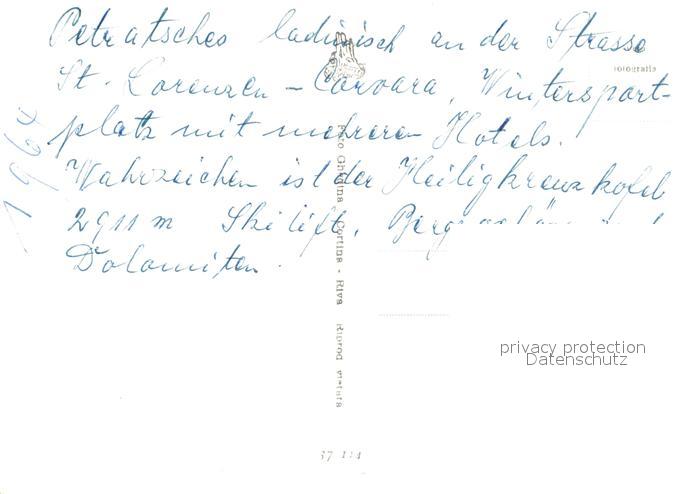 Petratsches ladinisch an der Strasse
St. Lorenzen - Corvara, Wintersport-
platz mit mehreren Hotels.
Wahrzeichen ist der Heiligkreuzkofel
2911 m Skilift,
Dolomiten.
1964
fotografia
Foto Ghedina - Cortina - Riva Riprod. vietata
privacy protection
Datenschutz